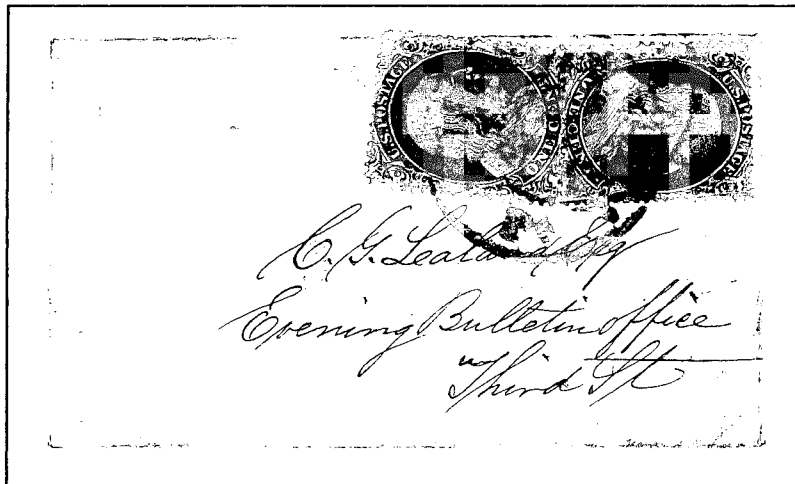 U.S. POSTAGE
ONE CENT
ONE CENT
U.S. POSTAGE
C. G. Leland Esq
Evening Bulletin office
Third St